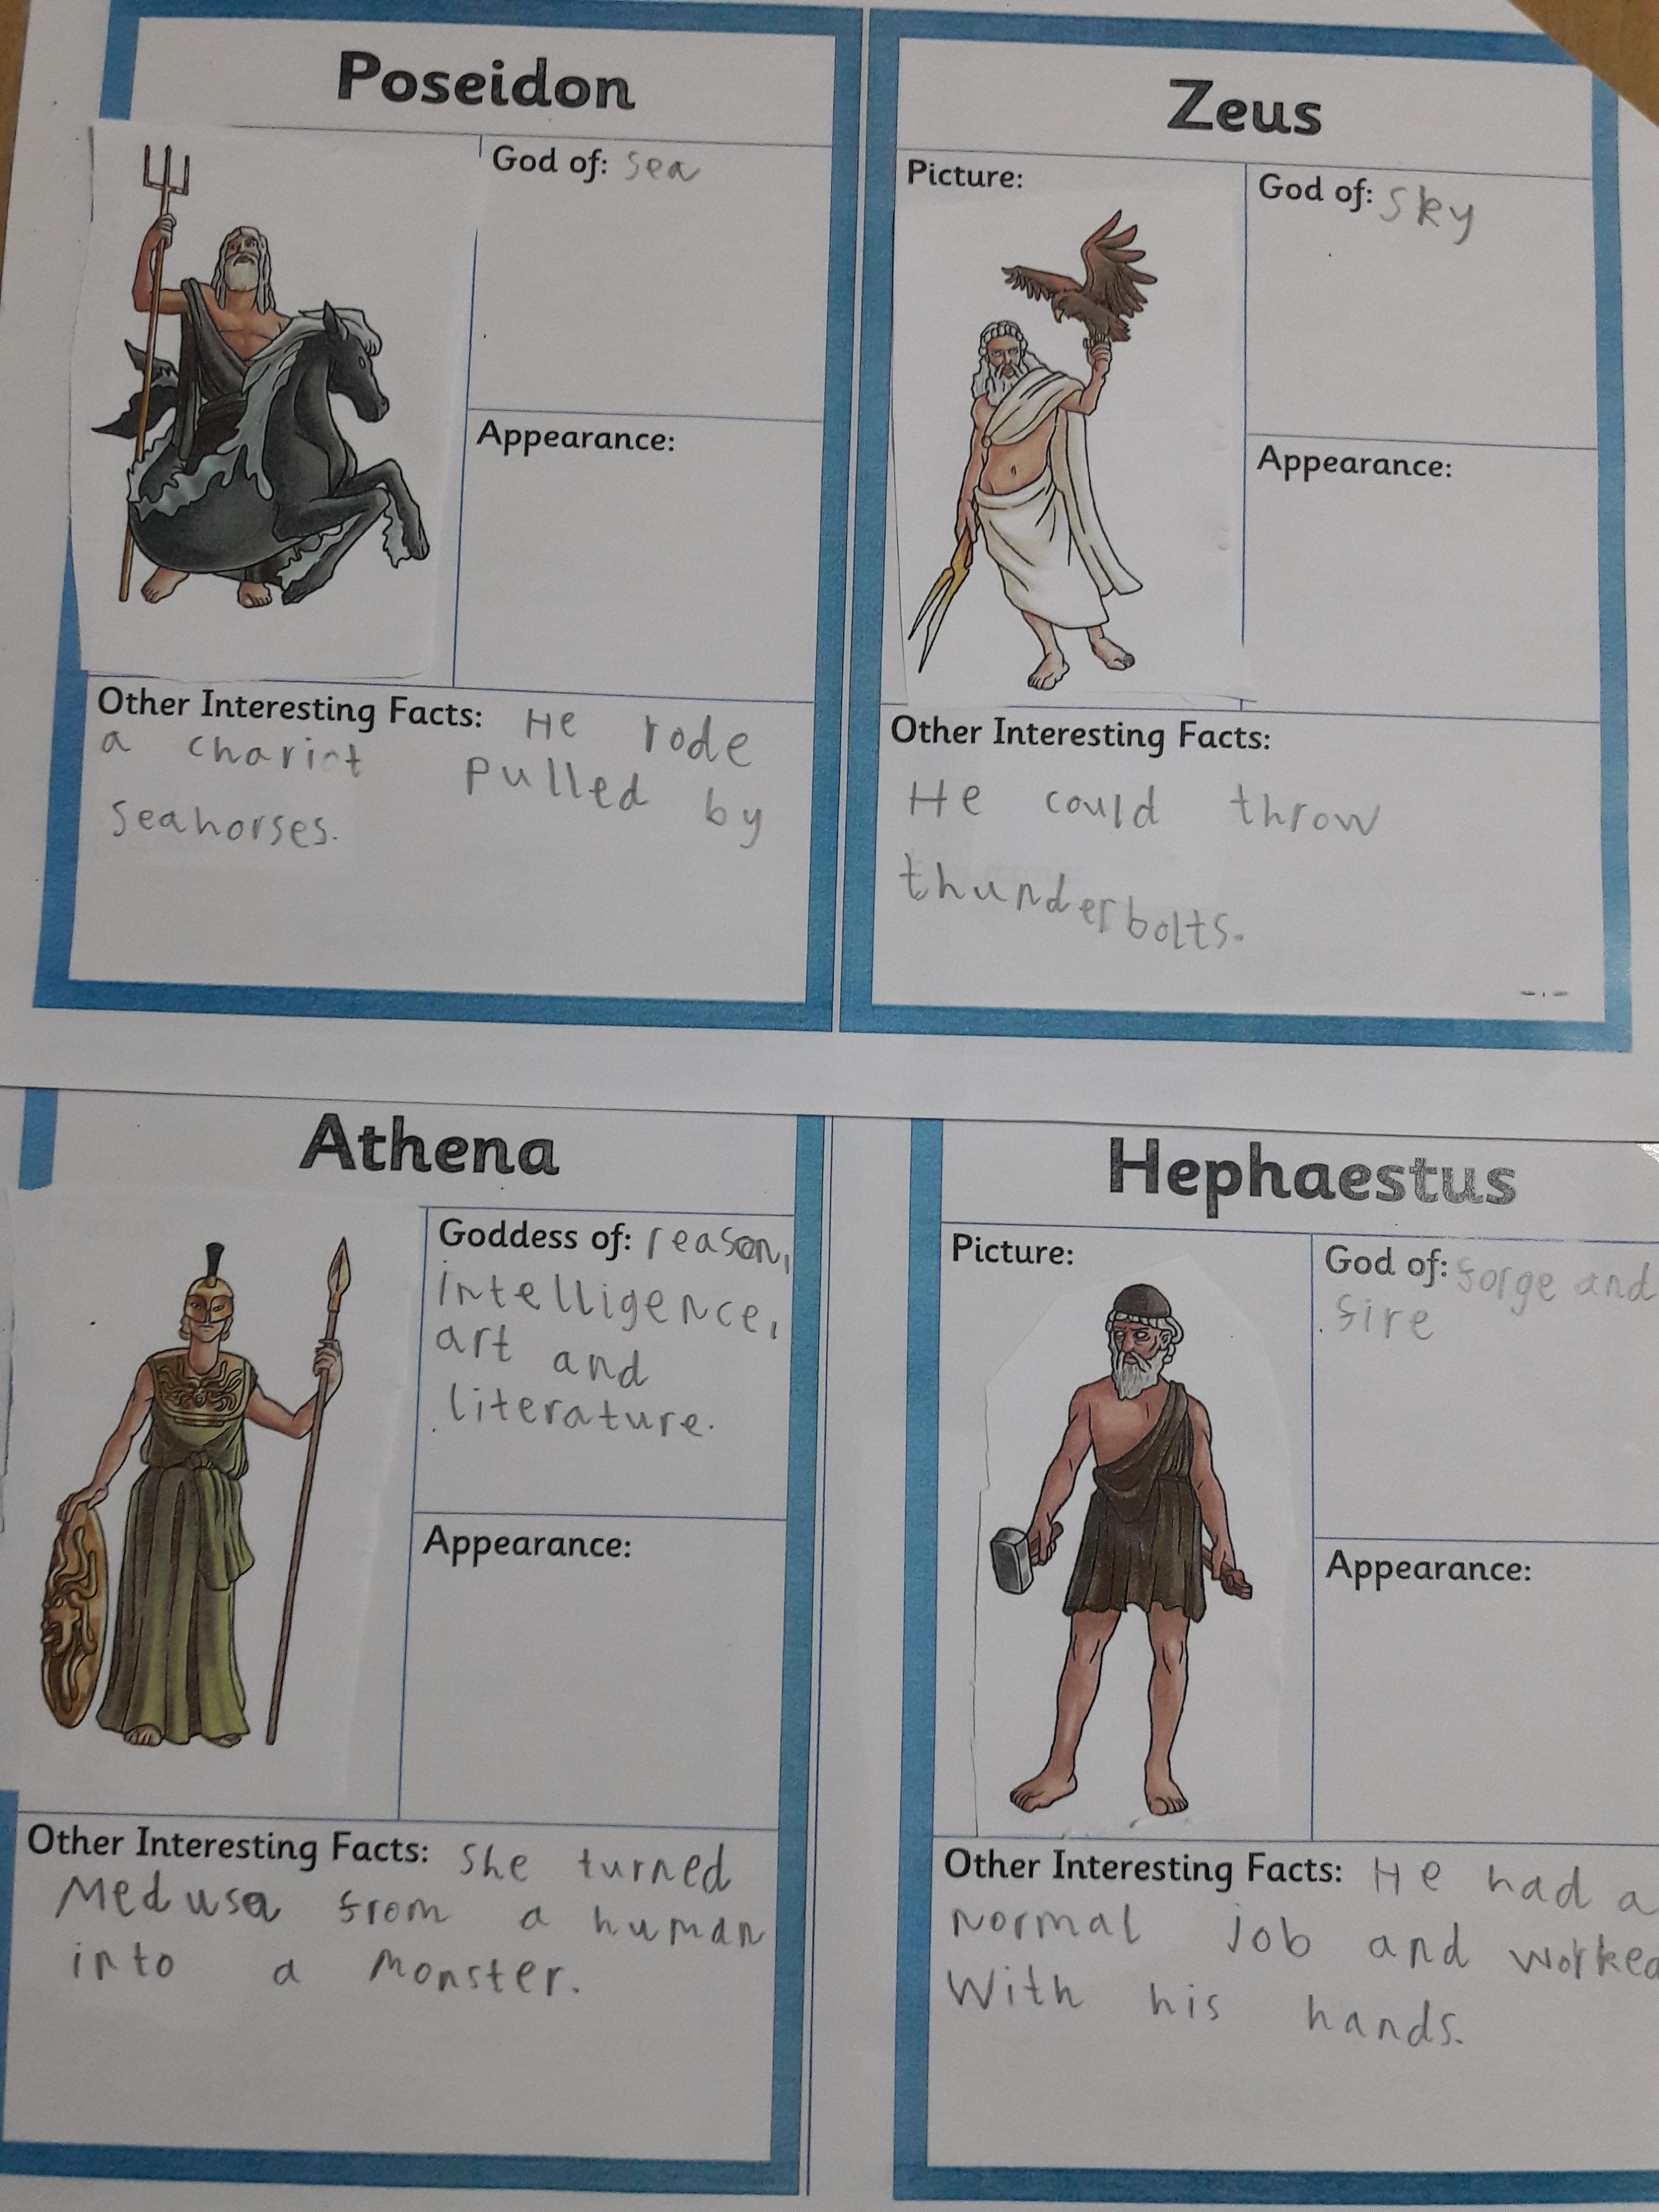 Poseidon
God of: sea
Appearance:
Other Interesting Facts: He rode
a chariot pulled by
seahorses.
Zeus
Picture:
God of: sky
Appearance:
Other Interesting Facts:
He could throw
thunderbolts.
Athena
Goddess of: reason,
intelligence,
art and
literature.
Appearance:
Other Interesting Facts: She turned
Medusa from a human
into a monster.
Hephaestus
Picture:
God of: forge and
fire
Appearance:
Other Interesting Facts: He had a
normal job and worked
with his hands.